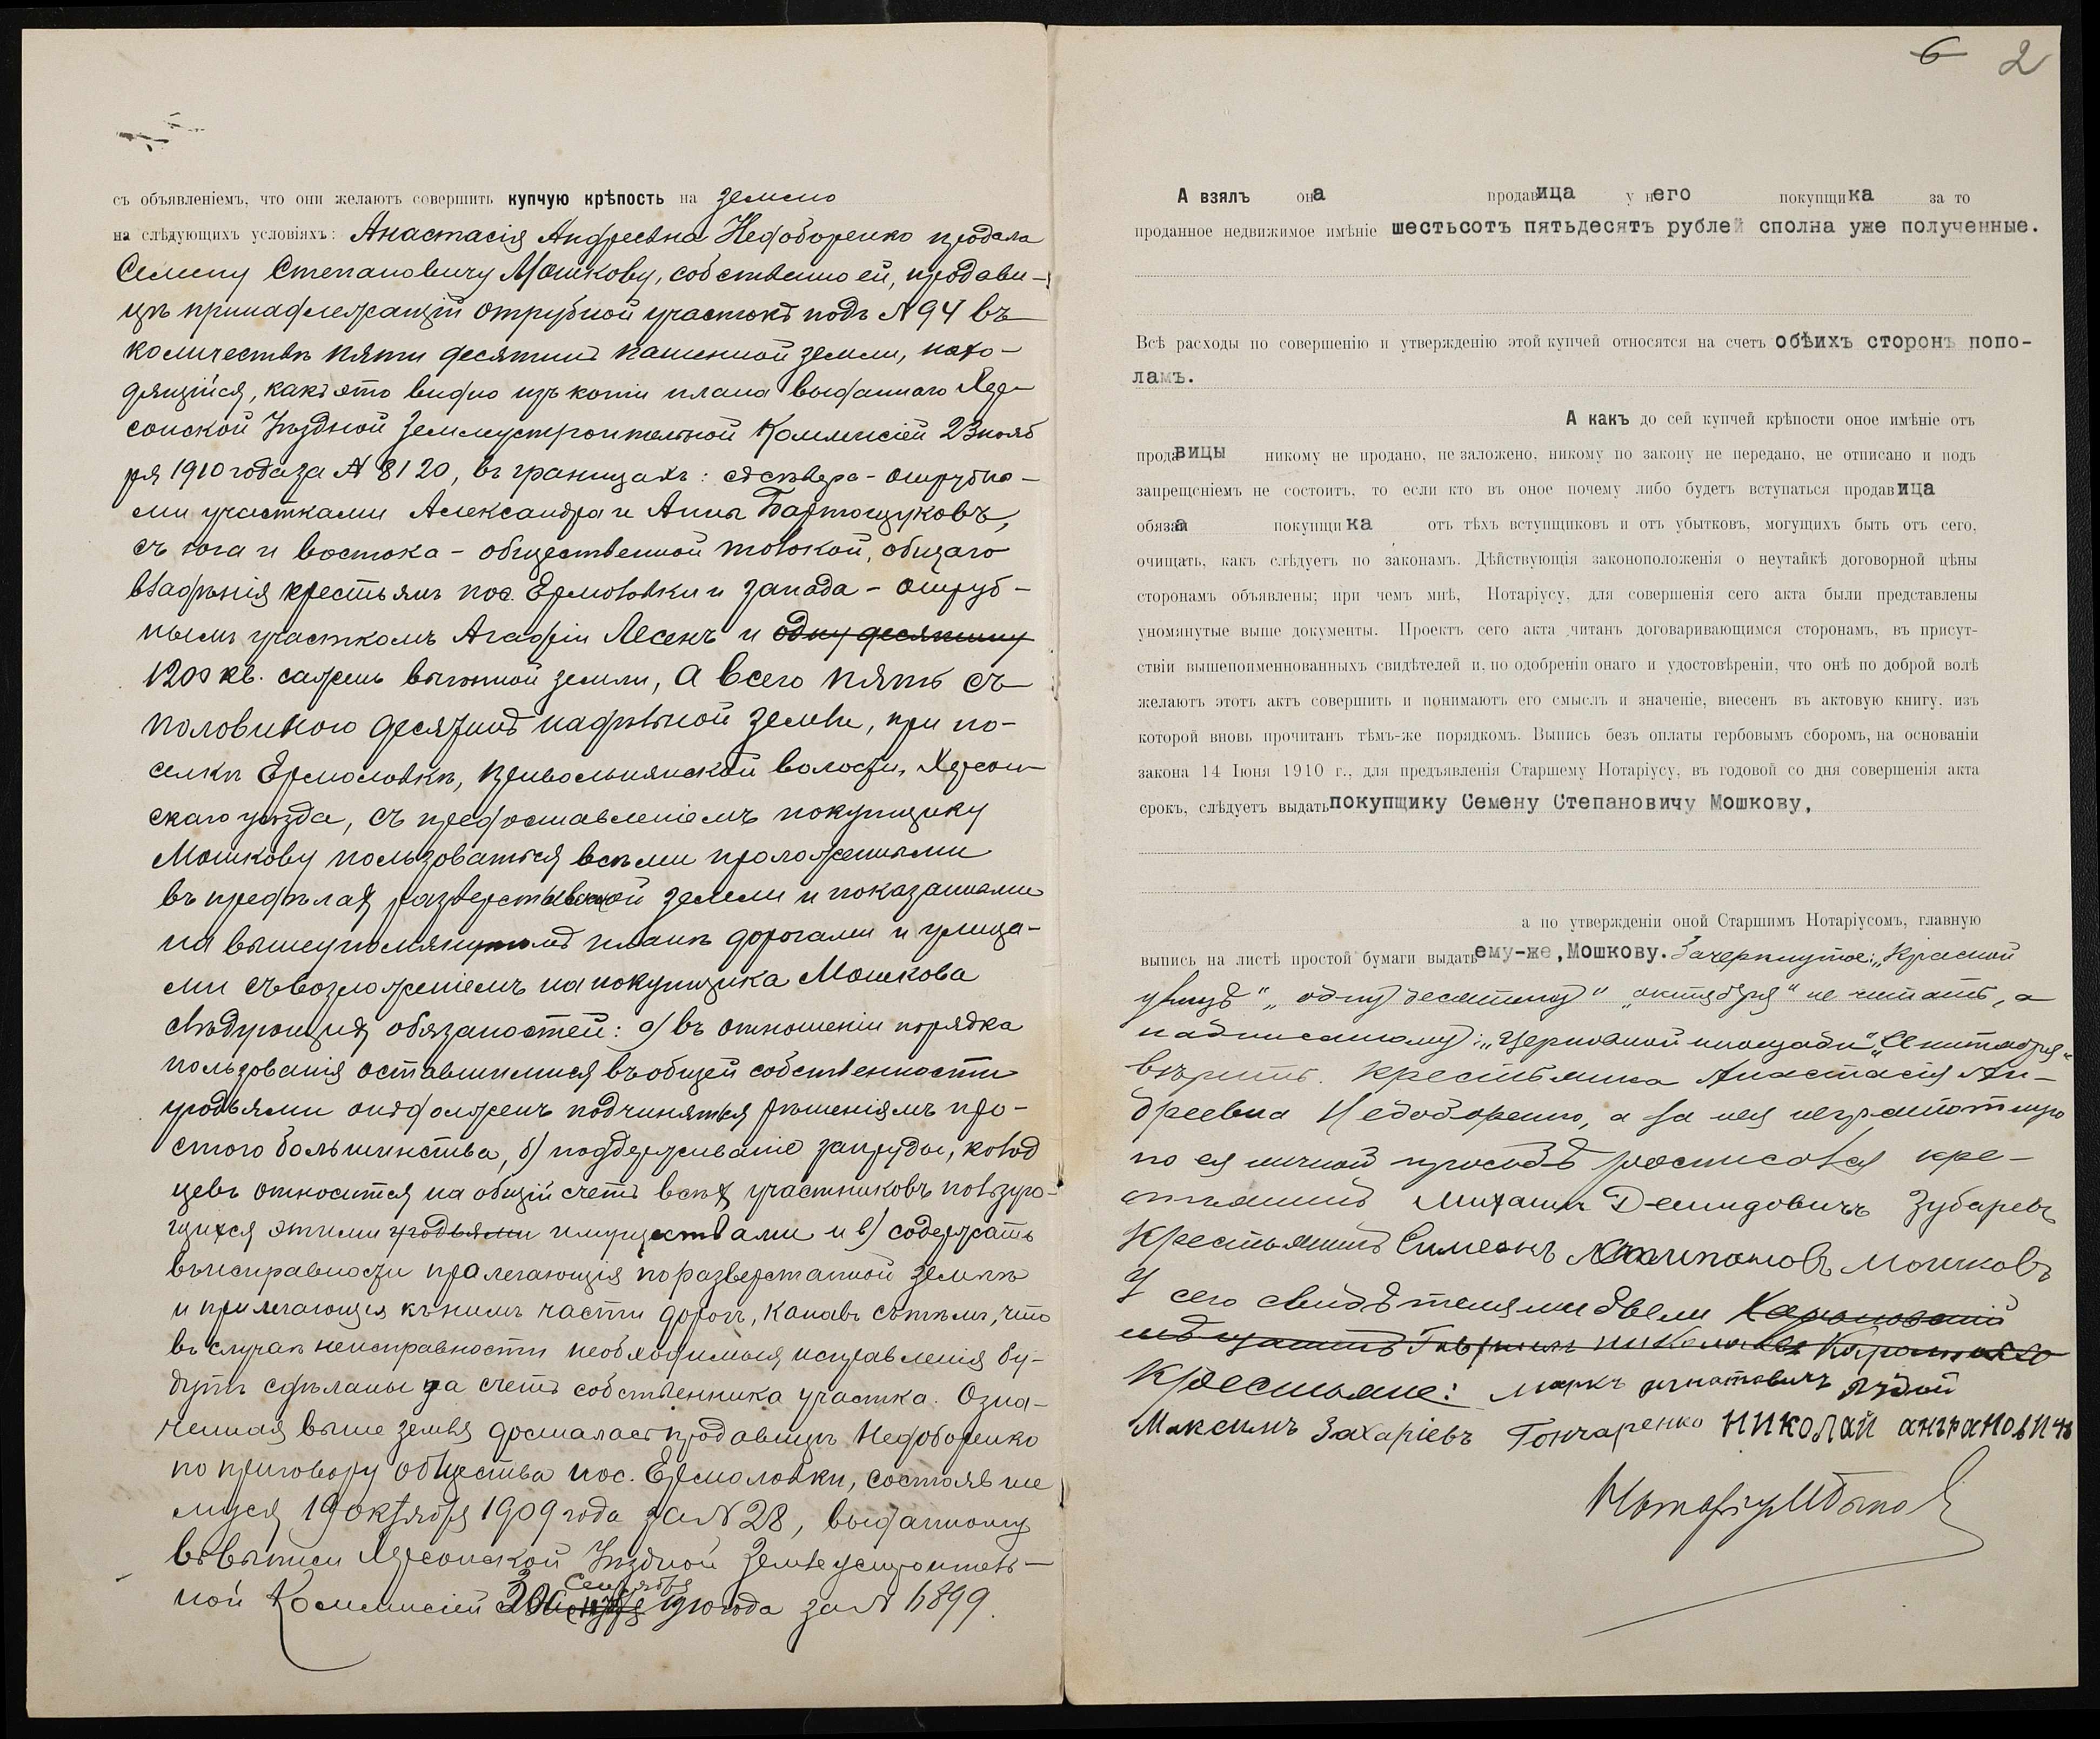 съ объявленіемъ, что они желаютъ совершить купчую крѣпость на землю
на слѣдующихъ условіяхъ: Анастасія Андреевна Недоборенко продала
Семену Степановичу Мошкову, собственно ей, продави-
цѣ принадлежащій отрубной участокъ подъ № 94 въ
количествѣ пяти десятинъ пашенной земли, нахо-
дящійся, какъ это видно изъ копіи плана выданнаго Хер-
сонской Уѣздной Землеустроительной Коммисіей 23 нояб
ря 1910 года за № 8120, въ границахъ: съ сѣвера - отрубны-
ми участками Александра и Анны Бартощуковъ,
съ юга и востока - общественной толокой, общаго
владѣнія крестьянъ пос. Ермоловки и запада - отруб-
нымъ участкомъ Агафіи Лесенъ и одну десятину
1200 кв. сажень выгонной земли, а всего пять съ
половиною десятинъ надѣльной земли, при по-
селкѣ Ермоловкѣ, Привольнянской волости, Херсон-
скаго уѣзда, съ предоставленіемъ покупщику
Мошкову пользоваться всѣми проложенными
въ предѣлах разверстываемой земли и показанными
на вышеупомянутомъ планѣ дорогами и улица-
ми съ возложеніемъ на покупщика Мошкова
слѣдующих обязаностей: а) въ отношеніи порядка
пользованія оставшимися въ общей собственности
угодьями онъ долженъ подчиняться рѣшеніямъ про-
стого большинства, б) поддерживаніе запруды, колод
цевъ относится на общій счетъ всѣх участниковъ пользую-
щихся этими угодьями имуществами и в) содержать
въ исправности пролегающія по разверстанной землѣ
и прилегающія къ нимъ части дорогъ, канавъ съ тѣмъ, что
въ случаѣ неисправности необходимыя исправленія бу-
дутъ сдѣланы за счетъ собственника участка. Озна-
ченная выше земля досталась продавицѣ Недоборенко
по приговору общества пос. Ермоловки, состоявше
муся 19 октября 1909 года за № 28, выданному
въ выписи Херсонской Уѣздной Землеустроитель-
Сентября
ной Коммисіей 30 октября 1910 года за № 6899.
6 2
А взялъ она продавица у него покупщика за то
проданное недвижимое имѣніе шестьсотъ пятьдесятъ рублей сполна уже полученные.
Всѣ расходы по совершенію и утвержденію этой купчей относятся на счетъ обѣихъ сторонъ попо-
ламъ.
А какъ до сей купчей крѣпости оное имѣніе отъ
продавицы никому не продано, не заложено, никому по закону не передано, не отписано и подъ
запрещеніемъ не состоитъ, то если кто въ оное почему либо будетъ вступаться продавица
обязана покупщика отъ тѣхъ вступщиковъ и отъ убытковъ, могущихъ быть отъ сего,
очищать, какъ слѣдуетъ по законамъ. Дѣйствующія законоположенія о неутайкѣ договорной цѣны
сторонамъ объявлены; при чемъ мнѣ, Нотаріусу, для совершенія сего акта были представлены
упомянутые выше документы. Проектъ сего акта читанъ договаривающимся сторонамъ, въ присут-
ствіи вышепоименнованныхъ свидѣтелей и, по одобреніи онаго и удостовѣреніи, что онѣ по доброй волѣ
желаютъ этотъ актъ совершить и понимаютъ его смыслъ и значеніе, внесенъ въ актовую книгу, изъ
которой вновь прочитанъ тѣмъ-же порядкомъ. Выпись безъ оплаты гербовымъ сборомъ, на основаніи
закона 14 Іюня 1910 г., для предъявленія Старшему Нотаріусу, въ годовой со дня совершенія акта
срокъ, слѣдуетъ выдать покупщику Семену Степановичу Мошкову,
а по утвержденіи оной Старшимъ Нотаріусомъ, главную
выпись на листѣ простой бумаги выдать ему-же, Мошкову. Зачеркнутое: „Красной
улицѣ“ „одну десятину“ „октября“ не читать, а
надписанному: „Церковной площади“ „Сентября“
вѣрить. Крестьянка Анастасія Ан-
дреевна Недоборенко, а за нея неграмотную
по ея личной просьбѣ росписался кре-
стьянинъ Михаилъ Демидовичъ Зубаревъ
Крестьянинъ Симеонъ Мошковъ
У сего свидѣтелями были
Крестьяне: Маркъ Игнатовичъ
Максимъ Захаріевъ Гончаренко Николай
Нотаріусъ